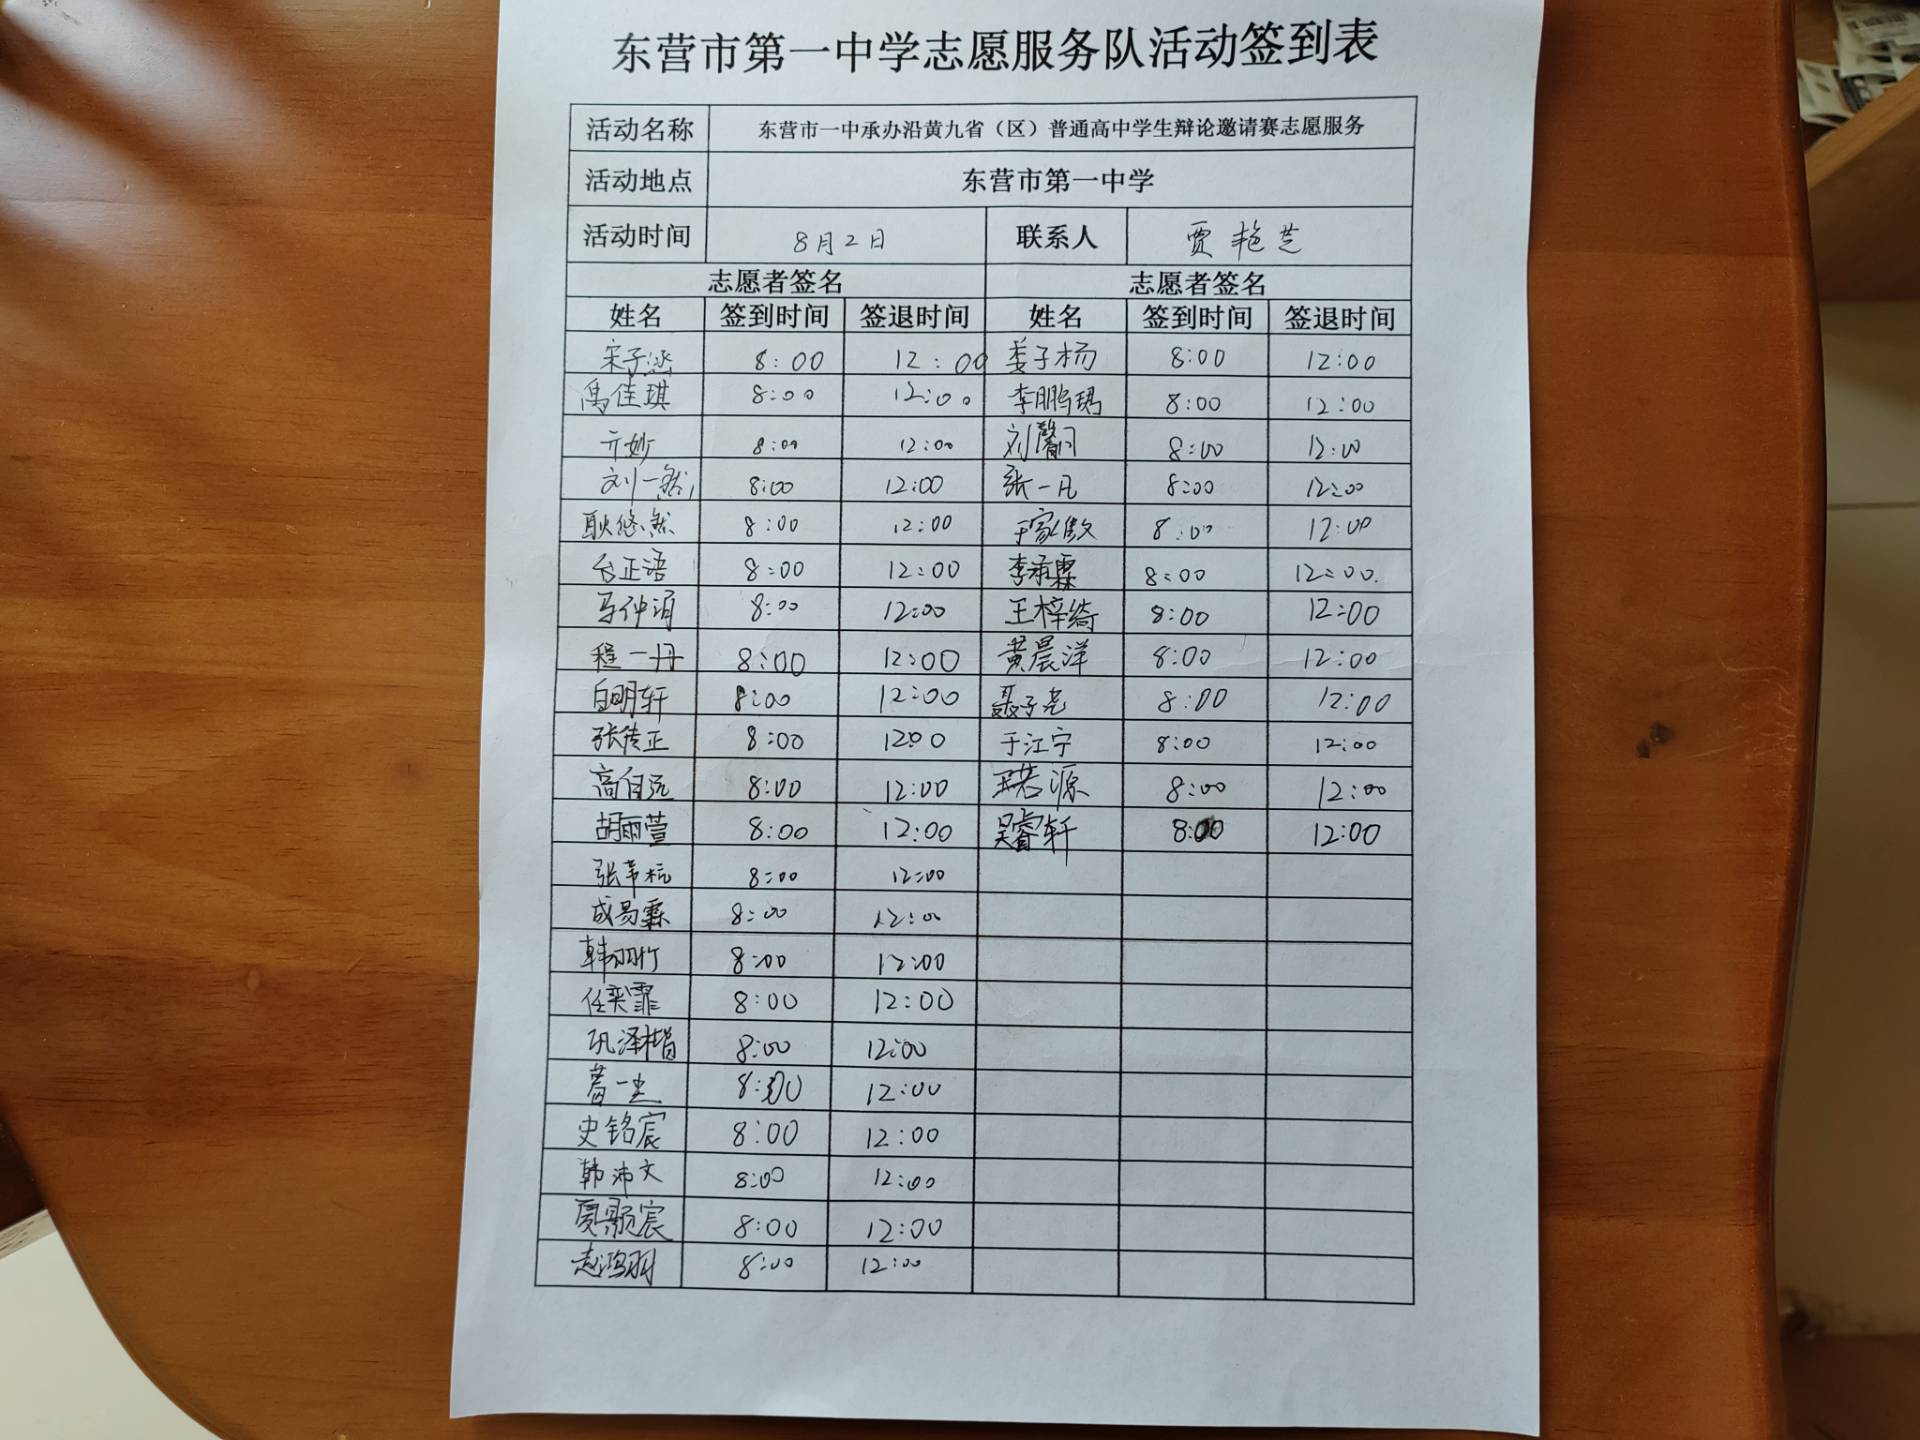 东营市第一中学志愿服务队活动签到表
活动名称 东营市一中承办沿黄九省（区）普通高中学生辩论邀请赛志愿服务
活动地点 东营市第一中学
活动时间 8月2日 联系人 贾艳芝
志愿者签名 志愿者签名
姓名 签到时间 签退时间 姓名 签到时间 签退时间
宋子涵 8:00 12:00 娄子杨 8:00 12:00
禹佳琪 8:00 12:00 李鹏瑀 8:00 12:00
亓妙 8:00 12:00 8:00 12:00
刘一然 8:00 12:00 张一凡 8:00 12:00
耿悠然 8:00 12:00 于家傲 8:00 12:00
台正语 8:00 12:00 李承霖 8:00 12:00
马仲润 8:00 12:00 王梓绮 8:00 12:00
程一丹 8:00 12:00 黄晨洋 8:00 12:00
白明轩 8:00 12:00 聂子尧 8:00 12:00
张传正 8:00 1200 于江宁 8:00 12:00
高自远 8:00 12:00 王若源 8:00 12:00
胡雨萱 8:00 12:00 吴睿轩 8:00 12:00
8:00 12:00
成易霖 8:00 12:00
韩羽竹 8:00 12:00
任奕霏 8:00 12:00
巩泽楷 8:00 12:00
8:00 12:00
史铭宸 8:00 12:00
韩沛文 8:00 12:00
夏颢宸 8:00 12:00
赵鸿羽 8:00 12:00